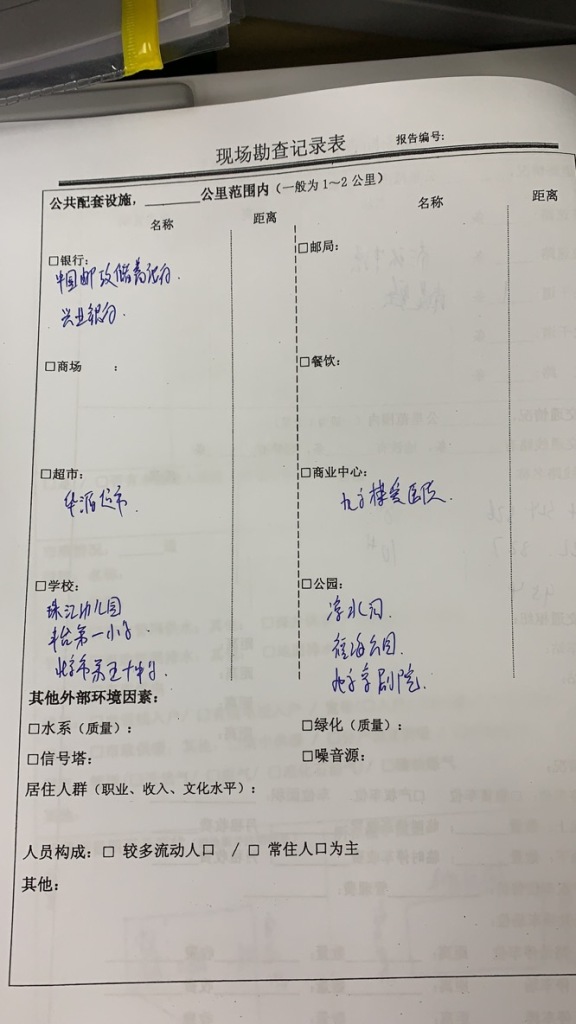 现场勘查记录表 报告编号:
公共配套设施，______公里范围内（一般为1～2公里）
名称 距离 名称 距离
□银行: □邮局:
中国邮政储蓄银行.
兴业银行.
□商场 : □餐饮:
□超市: □商业中心:
华润超市. 医院.
□学校: □公园:
珠江幼儿园 凉水河
丰台第一小学. 公园.
北京市第五十中学. 北京京剧院.
其他外部环境因素:
□水系（质量）: □绿化（质量）:
□信号塔: □噪音源:
居住人群（职业、收入、文化水平）:
人员构成: □ 较多流动人口 / □ 常住人口为主
其他: